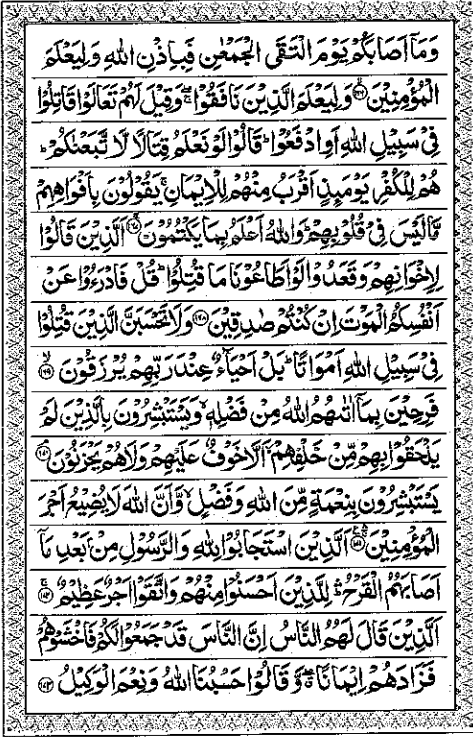 وَمَاۤ اَصَابَكُمْ يَوْمَ الْتَقَى الْجَمْعٰنِ فَبِاِذْنِ اللّٰهِ وَلِيَعْلَمَ
الْمُؤْمِنِيْنَ ﴿١٦٦﴾ وَلِيَعْلَمَ الَّذِيْنَ نَافَقُوْا ۖۚ وَقِيْلَ لَهُمْ تَعَالَوْا قَاتِلُوْا
فِيْ سَبِيْلِ اللّٰهِ اَوِادْفَعُوْا ؕ قَالُوْا لَوْ نَعْلَمُ قِتَالًا لَّا تَّبَعْنٰكُمْ ؕ
هُمْ لِلْكُفْرِ يَوْمَئِذٍ اَقْرَبُ مِنْهُمْ لِلْاِيْمَانِ ۚ يَقُوْلُوْنَ بِاَفْوَاهِهِمْ
مَّا لَيْسَ فِيْ قُلُوْبِهِمْ ؕ وَاللّٰهُ اَعْلَمُ بِمَا يَكْتُمُوْنَ ﴿١٦٧﴾ اَلَّذِيْنَ قَالُوْا
لِاِخْوَانِهِمْ وَقَعَدُوْا لَوْ اَطَاعُوْنَا مَا قُتِلُوْا ؕ قُلْ فَادْرَءُوْا عَنْ
اَنْفُسِكُمُ الْمَوْتَ اِنْ كُنْتُمْ صٰدِقِيْنَ ﴿١٦٨﴾ وَلَا تَحْسَبَنَّ الَّذِيْنَ قُتِلُوْا
فِيْ سَبِيْلِ اللّٰهِ اَمْوَاتًا ؕ بَلْ اَحْيَآءٌ عِنْدَ رَبِّهِمْ يُرْزَقُوْنَ ﴿١٦٩﴾ ۙ
فَرِحِيْنَ بِمَاۤ اٰتٰىهُمُ اللّٰهُ مِنْ فَضْلِهٖ ۙ وَيَسْتَبْشِرُوْنَ بِالَّذِيْنَ لَمْ
يَلْحَقُوْا بِهِمْ مِّنْ خَلْفِهِمْ ۙ اَلَّا خَوْفٌ عَلَيْهِمْ وَلَا هُمْ يَحْزَنُوْنَ ﴿١٧٠﴾ ۘ
يَسْتَبْشِرُوْنَ بِنِعْمَةٍ مِّنَ اللّٰهِ وَفَضْلٍ ۙ وَّاَنَّ اللّٰهَ لَا يُضِيْعُ اَجْرَ
الْمُؤْمِنِيْنَ ﴿١٧١﴾ اَلَّذِيْنَ اسْتَجَابُوْا لِلّٰهِ وَالرَّسُوْلِ مِنْۢ بَعْدِ مَاۤ
اَصَابَهُمُ الْقَرْحُ ؕ لِلَّذِيْنَ اَحْسَنُوْا مِنْهُمْ وَاتَّقَوْا اَجْرٌ عَظِيْمٌ ﴿١٧٢﴾ ۚ
اَلَّذِيْنَ قَالَ لَهُمُ النَّاسُ اِنَّ النَّاسَ قَدْ جَمَعُوْا لَكُمْ فَاخْشَوْهُمْ
فَزَادَهُمْ اِيْمَانًا ۖۗ وَّقَالُوْا حَسْبُنَا اللّٰهُ وَنِعْمَ الْوَكِيْلُ ﴿١٧٣﴾